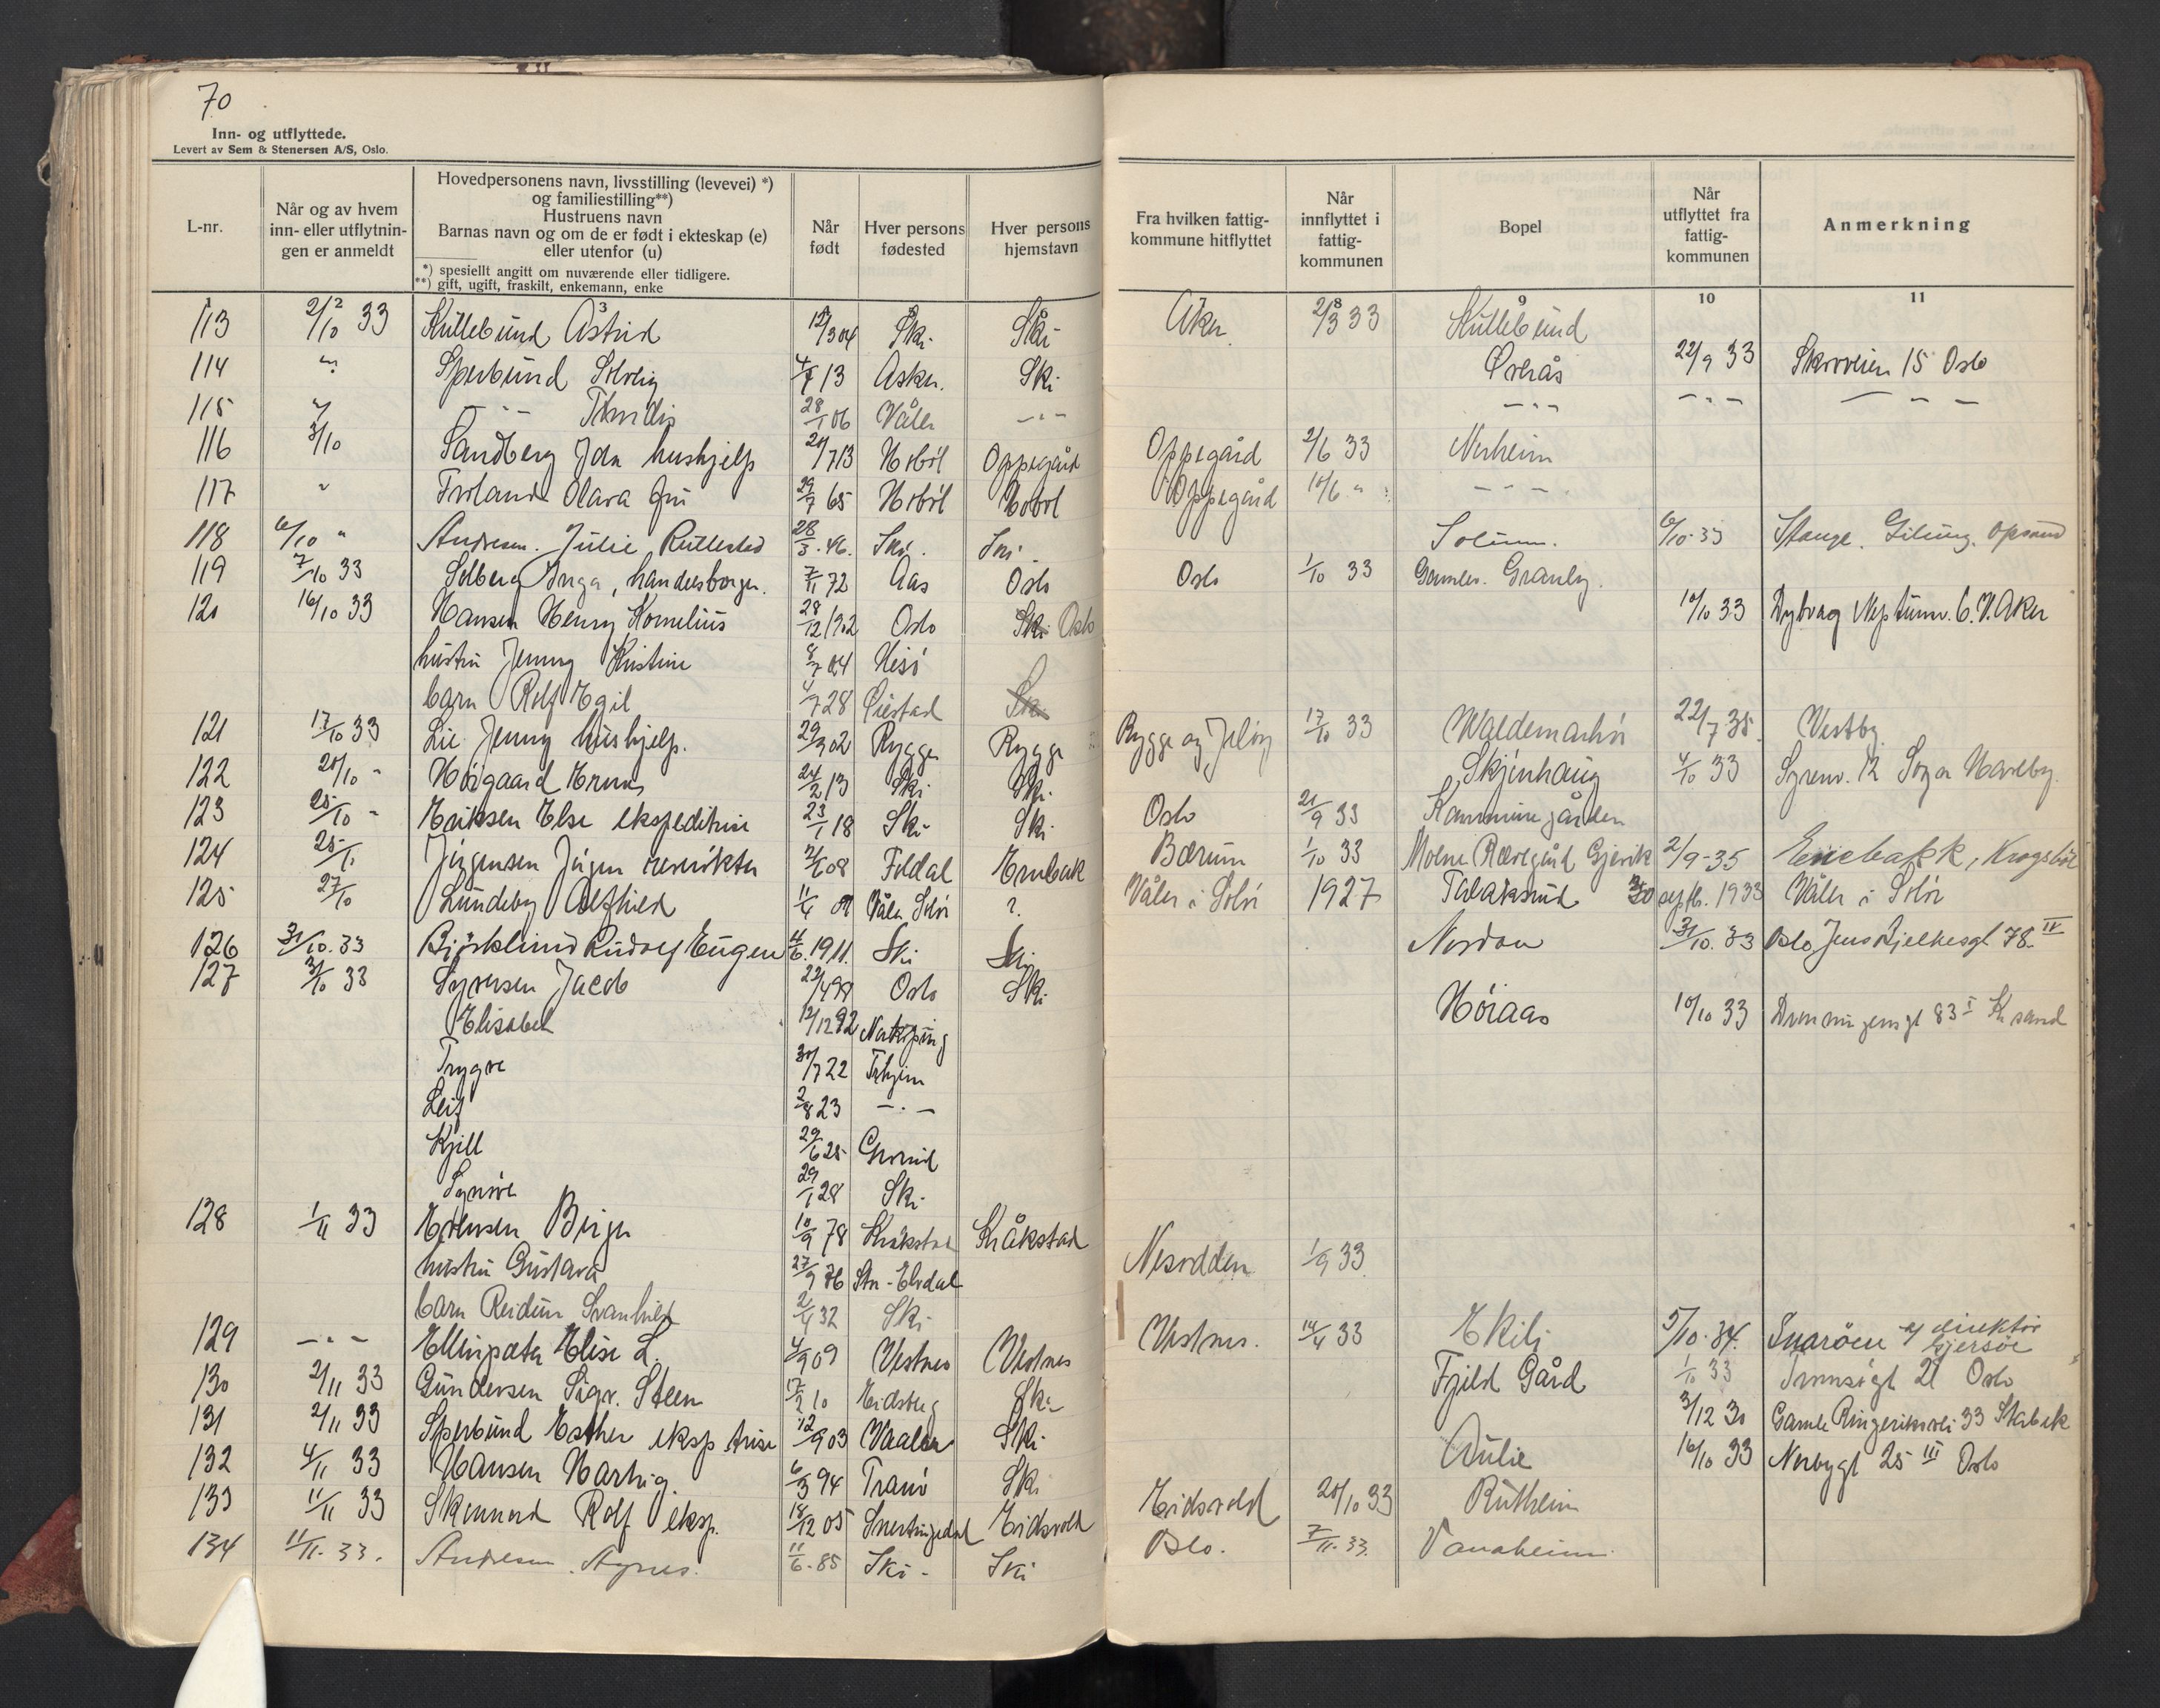 70
Inn- og utflyttede.
Levert av Sem & Stenersen A/S, Oslo.
L-nr.
Når og av hvem inn- eller utflytnin- gen er anmeldt
Hovedpersonens navn, livsstilling (levevei) *) og familiestilling**) Hustruens navn Barnas navn og om de er født i ekteskap (e) eller utenfor (u)
*) spesiellt angitt om nuværende eller tidligere.
**) gift, ugift, fraskilt, enkemann, enke
Når født
Hver persons fødested
Hver persons hjemstavn
Fra hvilken fattig- kommune hitflyttet
Når innflyttet i fattig- kommunen
Bopel
Når utflyttet fra fattig- kommunen
Anmerkning
2 3 8 9 10 11
113 2/10 33 Kullebund Astrid 12/3 04 Ski Ski Aker 2/3 33 Kullebund
114 " Sperbund Solveig 4/7 13 Asker. Ski Øvrås 22/9 33 Skovveien 15 Oslo
115 " — " — Thordis 28/1 06 Våler — " — — " — — " — — " —
116 3/10 Sandberg Ida hushjelp 20/7 13 Hobøl Oppegård Oppegård 2/6 33 Nerheim
117 " Froland Olava fru 29/7 65 Hobøl Hobøl Oppegård 10/6 " — " —
118 6/10 " Andresen. Julie Rullestad 28/3. 46. Ski. Ski. Solum. 6/10-33 Stange.
119 7/10 33 Solberg Inga, handelsborger. 7/11 72 Aas Oslo Oslo 1/10 33 Gamlev. Granly.
120 16/10 33 Hansen Henry Kornelius 28/12 1902 Oslo Ski Oslo 10/10 33 Dybvag Neptunv. 6. V. Aker
hustru Jenny Kristine 8/7 04 Hisö
barn Rolf Egil 4/7 28 Öiestad Ski
121 17/10 33 Lie Jenny hushjelp. 29/3 02 Rygge Rygge Rygge og Jeløy 17/10 33 Waldemarhöi 22/7 35. Vestby.
122 20/10 " Höigaard Erna 24/2 13 Ski Ski Skjenhaug 4/10 33 Syrenv. 12 Sogn Haveby.
123 25/10 " Eriksen Else ekspeditrise 23/1 18 Ski Ski Oslo 21/9 33 Kommunegården
124 25/10 Jörgensen Jörgen 2/1 08 Foldal Enebak Bærum 1/10 33 Moene Rævegård Gjevik 2/9-35 Enebakk, Krogsböl
125 27/10 Lundeby Alfhild 11/4 Våler Solör ? Våler i Solör 1927 Talaksrud 30 septb. 1933 Våler i Solör
126 31/10. 33 Björklund Rudolf Eugen 4/6. 1911. Ski Ski Nordon 31/10. 33 Oslo Jens Bjelkesgt 78. IV
127 31/10 33 Syversen Jacob 22/4 99 Oslo Ski Höiaas 10/10 33 Dronningensgt 83 I Kr sand
Elisabet 12/12 92 Norköping
Trygve 30/7 22 Trhjem
Leif 2/8 23 — " —
Kjell 29/6 25 Grorud
Synöve 29/1 28 Ski
128 1/11 33 Evensen Birger 10/9 78 Kråkstad Kråkstad
hustru Gustava 27/9 76 Str-Elvdal Nesodden 1/9 33
barn Reidun Svanhild 2/4 32 Ski
129 — " — Ellingsæter Elise L. 4/9 09 Vestnes Vestnes Vestnes. 10/4 33 Ekeli 5/10. 34. Snaröen direktör
130 2/11 33 Gundersen Sigv. Steen 17/2 10 Eidsberg Ski Fjeld Gård 1/10 33 Tromsögt 21 Oslo
131 2/11 33 Sperbund Esther eksp trise 12/9 03 Vaaler Ski 31/12 30 Gamle Ringeriksvei 33 Stabæk
132 4/11 33 Hansen Hartvig. 6/3 94 Tranö Ski Aulie 16/10 33 Norbygt 25 III Oslo
133 11/11 33 Skinnerud Rolf eksp. 18/12 05 Snertingedal Eidsvold Eidsvold 20/10 33 Rutheim
134 11/11. 33. Andresen. Agnes. 11/6. 85 Ski - Ski Oslo. 7/11. 33. Vanaheim.